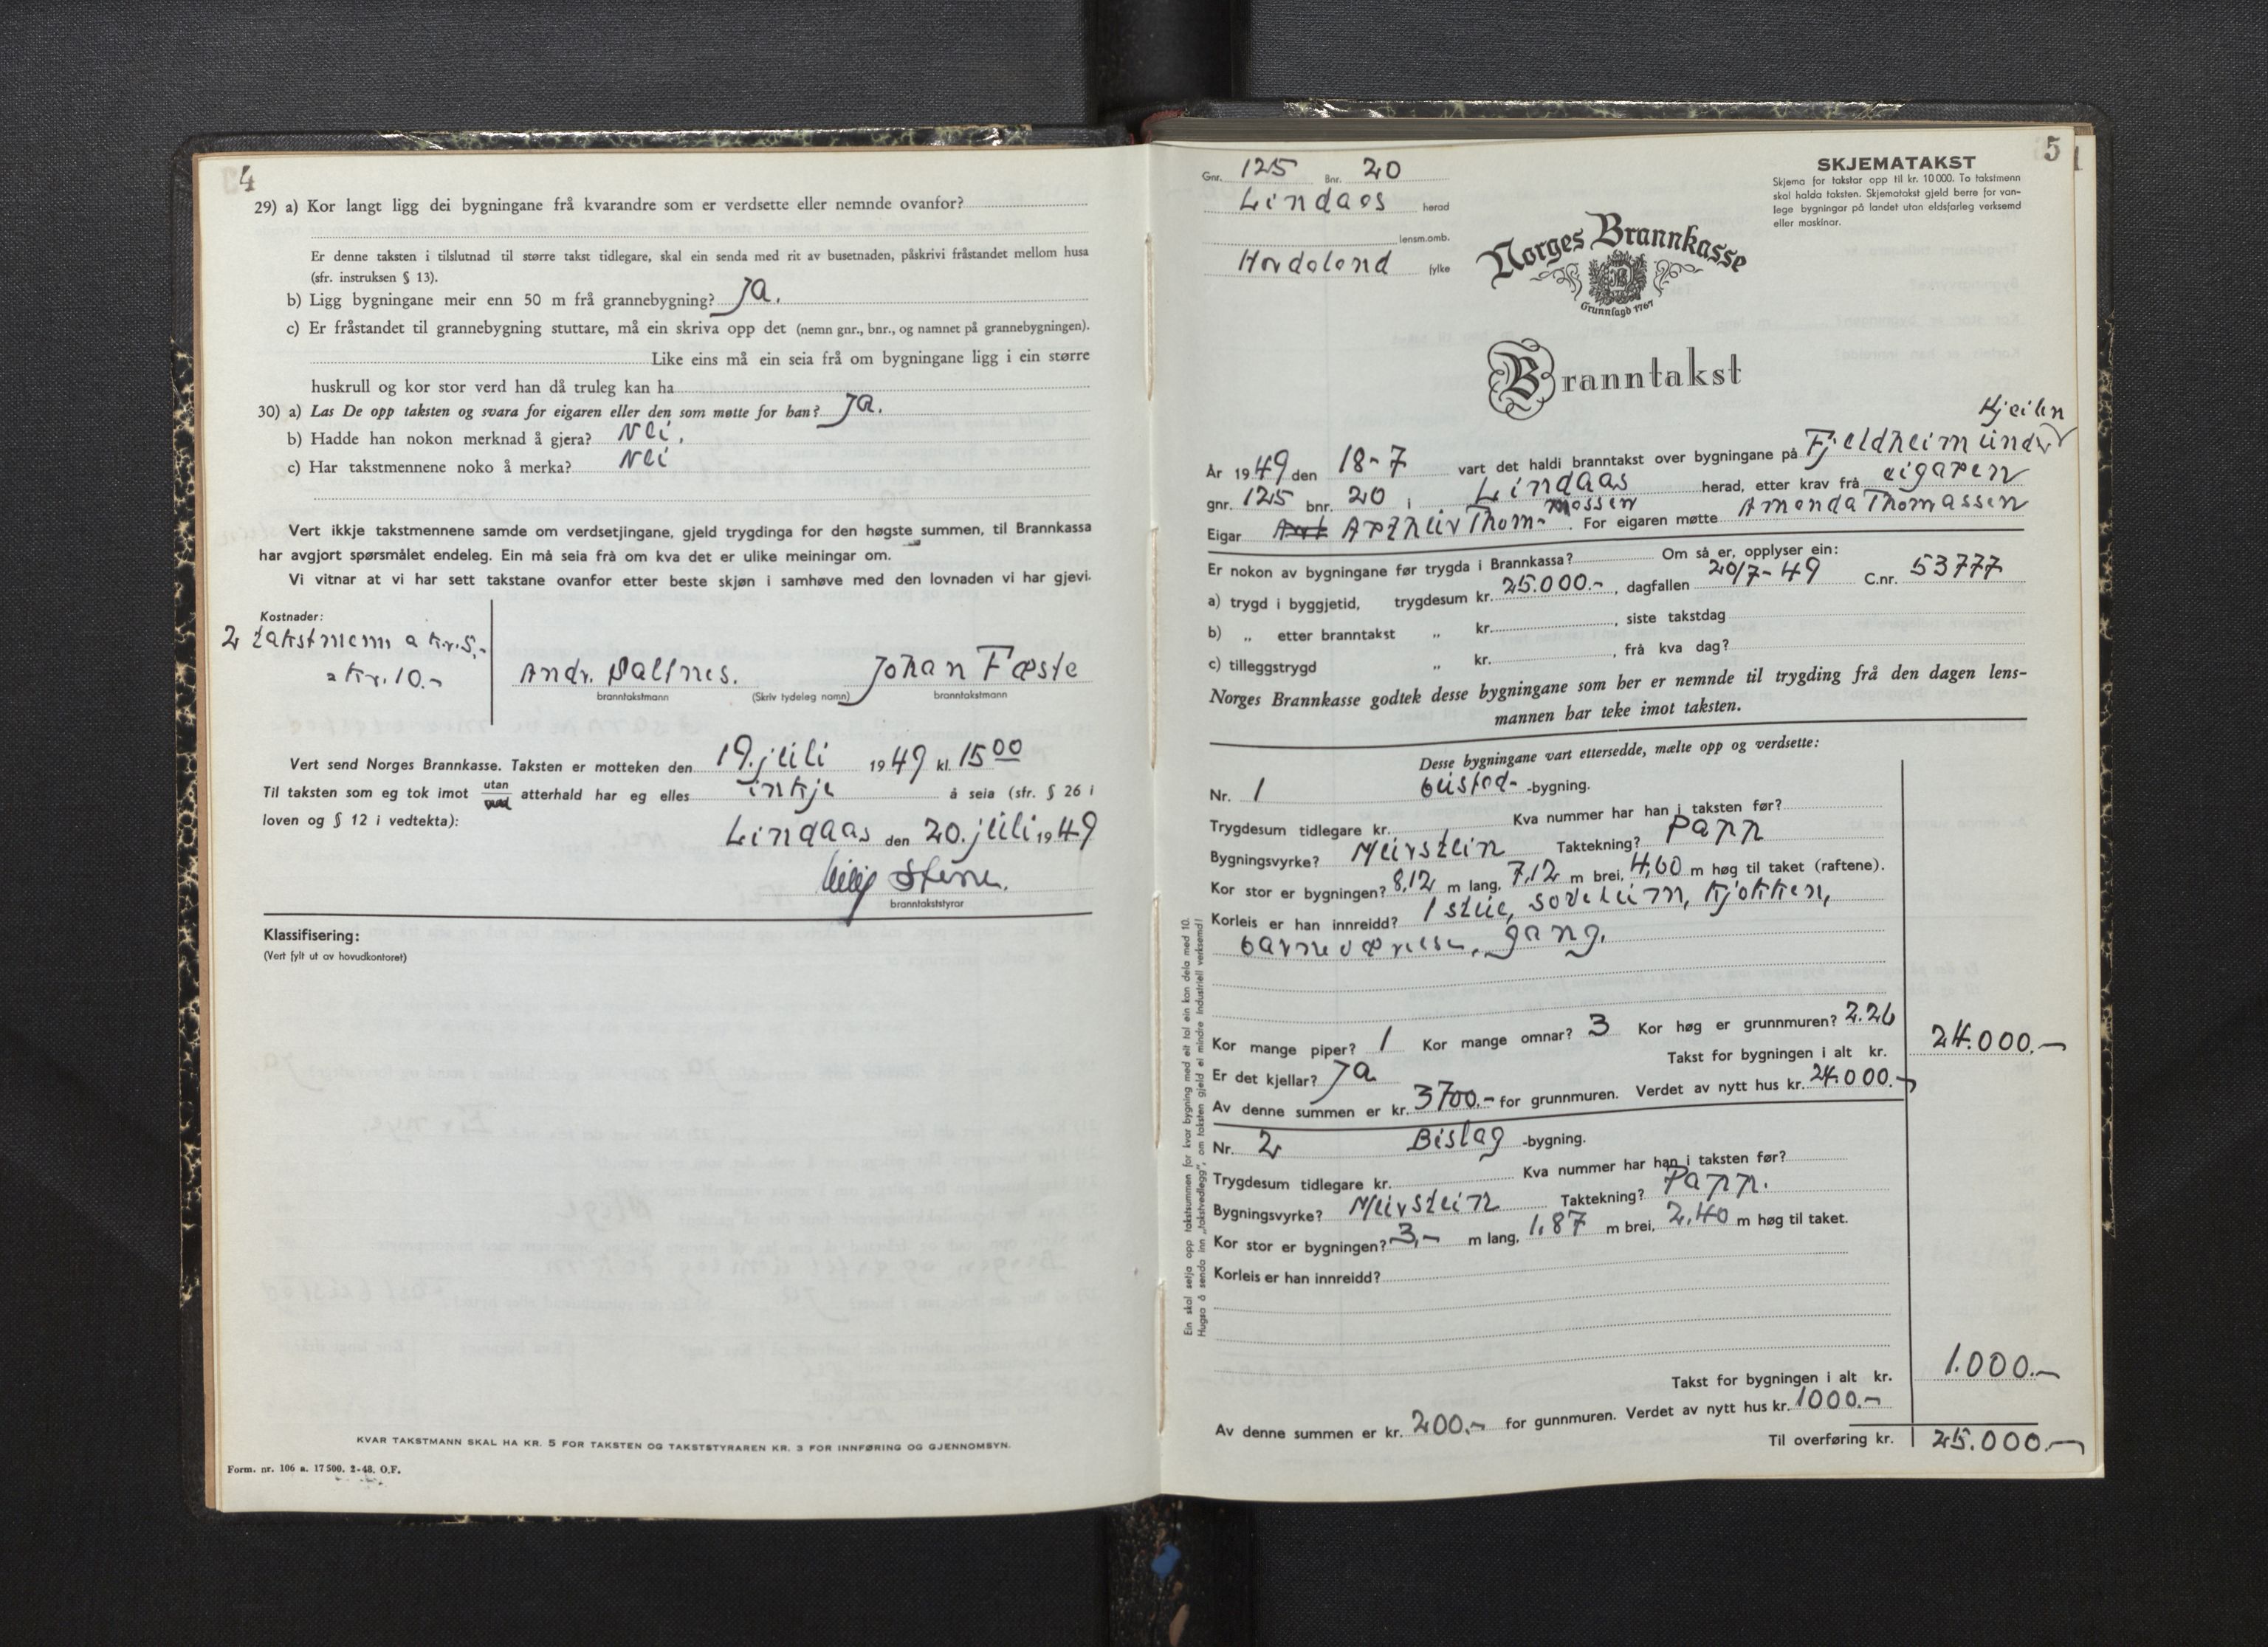 4
29) a) Kor langt ligg dei bygningane frå kvarandre som er verdsette eller nemnde ovanfor?
Er denne taksten i tilslutnad til større takst tidlegare, skal ein senda med rit av busetnaden, påskrivi fråstandet mellom husa
(sfr. instruksen § 13).
b) Ligg bygningane meir enn 50 m frå grannebygning? Ja.
c) Er fråstandet til grannebygning stuttare, må ein skriva opp det (nemn gnr., bnr., og namnet på grannebygningen).
Like eins må ein seia frå om bygningane ligg i ein større
huskrull og kor stor verd han då truleg kan ha
30) a) Las De opp taksten og svara for eigaren eller den som møtte for han? Ja.
b) Hadde han nokon merknad å gjera? Nei.
c) Har takstmennene noko å merka? Nei
Vert ikkje takstmennene samde om verdsetjingane, gjeld trygdinga for den høgste summen, til Brannkassa
har avgjort spørsmålet endeleg. Ein må seia frå om kva det er ulike meiningar om.
Vi vitnar at vi har sett takstane ovanfor etter beste skjøn i samhøve med den lovnaden vi har gjevi.
Kostnader:
2 takstmenn a kr. 5,-
= kr. 10.-
Andr. Saltnes. Johan Fæste
branntakstmann (Skriv tydeleg namn) branntakstmann
Vert send Norges Brannkasse. Taksten er motteken den 19. juli 1949 kl. 15 00
Til taksten som eg tok imot utan atterhald har eg elles inkje å seia (sfr. § 26 i
loven og § 12 i vedtekta):
Lindaas den 20. juli 1949
branntakststyrar
Klassifisering:
(Vert fylt ut av hovudkontoret)
KVAR TAKSTMANN SKAL HA KR. 5 FOR TAKSTEN OG TAKSTSTYRAREN KR. 3 FOR INNFØRING OG GJENNOMSYN.
Form. nr. 106 a. 17 500. 2-48. O.F.
5
Gnr. 125 Bnr. 20
Lindaas herad
lensm.omb.
Hordaland fylke
SKJEMATAKST
Skjema for takstar opp til kr. 10 000. To takstmenn
skal halda taksten. Skjematakst gjeld berre for van-
lege bygningar på landet utan eldsfarleg verksemd
eller maskinar.
Norges Brannkasse
Grunnlagd 1767
Branntakst
Kjeilen
År 1949 den 18-7 vart det haldi branntakst over bygningane på Fjeldheim under
gnr. 125 bnr. 20 i Lindaas herad, etter krav frå eigaren
Eigar Arthur Thommossen. For eigaren møtte Amanda Thomassen
Er nokon av bygningane før trygda i Brannkassa? Om så er, opplyser ein:
a) trygd i byggjetid, trygdesum kr. 25.000.-, dagfallen 20/7-49 C.nr. 53777
b) „ etter branntakst „ kr. , siste takstdag
c) tilleggstrygd „ kr. , frå kva dag?
Norges Brannkasse godtek desse bygningane som her er nemnde til trygding frå den dagen lens-
mannen har teke imot taksten.
Desse bygningane vart ettersedde, mælte opp og verdsette:
Nr. 1 bustad- -bygning.
Trygdesum tidlegare kr. Kva nummer har han i taksten før?
Bygningsvyrke? Murstein Taktekning? Papp
Kor stor er bygningen? 8,12 m lang, 7,12 m brei, 4,60 m høg til taket (raftene).
Korleis er han innreidd? 1 stue, soverum, kjøkken,
barneværelse, gang.
Kor mange piper? 1 Kor mange omnar? 3 Kor høg er grunnmuren? 2.26
Er det kjellar? Ja Takst for bygningen i alt kr. 24.000.-
Av denne summen er kr. 3700.- for grunnmuren. Verdet av nytt hus kr. 24.000.-
Nr. 2 Bislag -bygning.
Trygdesum tidlegare kr. Kva nummer har han i taksten før?
Bygningsvyrke? Murstein Taktekning? Papp.
Kor stor er bygningen? 3,- m lang, 1,87 m brei, 2,40 m høg til taket.
Korleis er han innreidd?
Takst for bygningen i alt kr. 1.000.-
Av denne summen er kr. 200.- for gunnmuren. Verdet av nytt hus kr. 1000.-
Til overføring kr. 25.000.-
Ein skal setja opp takstsummen for kvar bygning med eit tal ein kan dela med 10.
Hugsa å senda inn „takstvedlegg”, om taksten gjeld ei mindre industriell verksemd!